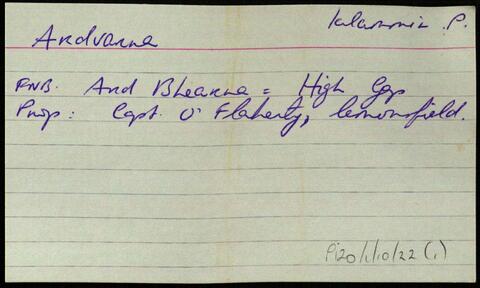 Kilcummin P.
Ardvarna
FNB. Ard Bhearna = High Gap
Prop: Capt. O' Flaherty, Lemonfield.
P120/1/10/22 (1)